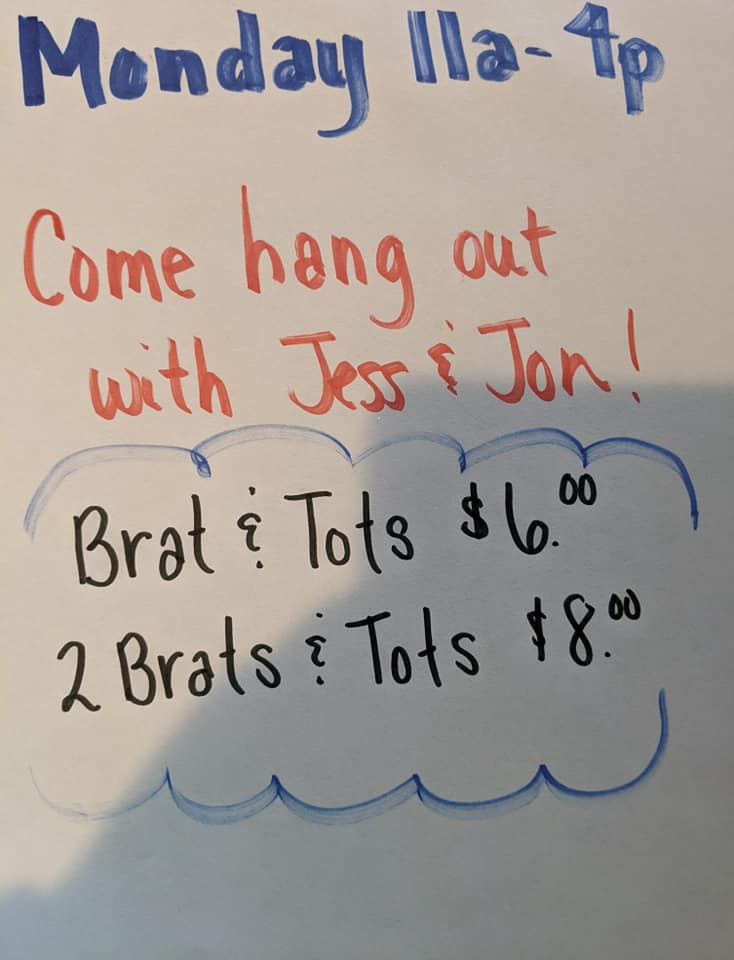 Monday 11a-4p
Come hang out
with Jess & Jon!
Brat & Tots $6.00
2 Brats & Tots $8.00